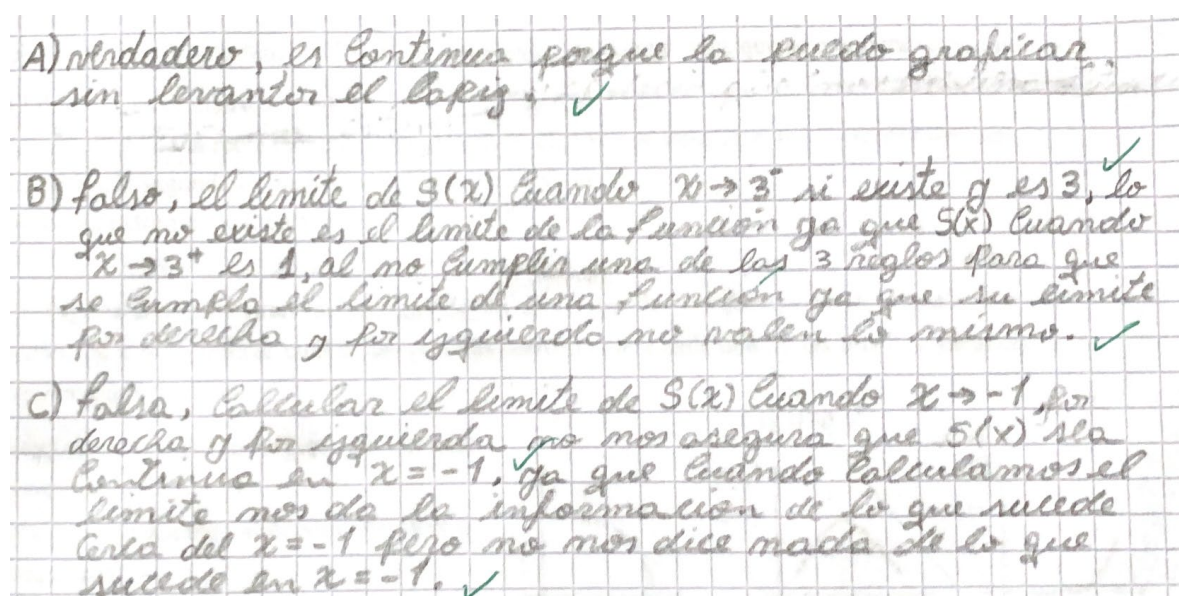 A) verdadero, es continua porque la puedo graficar
sin levantar el lapiz.
B) falso, el limite de S(x) cuando x → 3⁻ si existe y es 3, lo
que no existe es el limite de la función ya que S(x) cuando
x → 3⁺ es 1, al no cumplir una de las 3 reglas para que
se cumpla el limite de una función ya que su limite
por derecha y por izquierda no valen lo mismo.
C) falsa, calcular el limite de S(x) cuando x → -1, por
derecha y por izquierda no nos asegura que S(x) sea
continua en x = -1, ya que cuando calculamos el
limite nos da la información de lo que sucede
cerca del x = -1 pero no nos dice nada de lo que
sucede en x = -1.